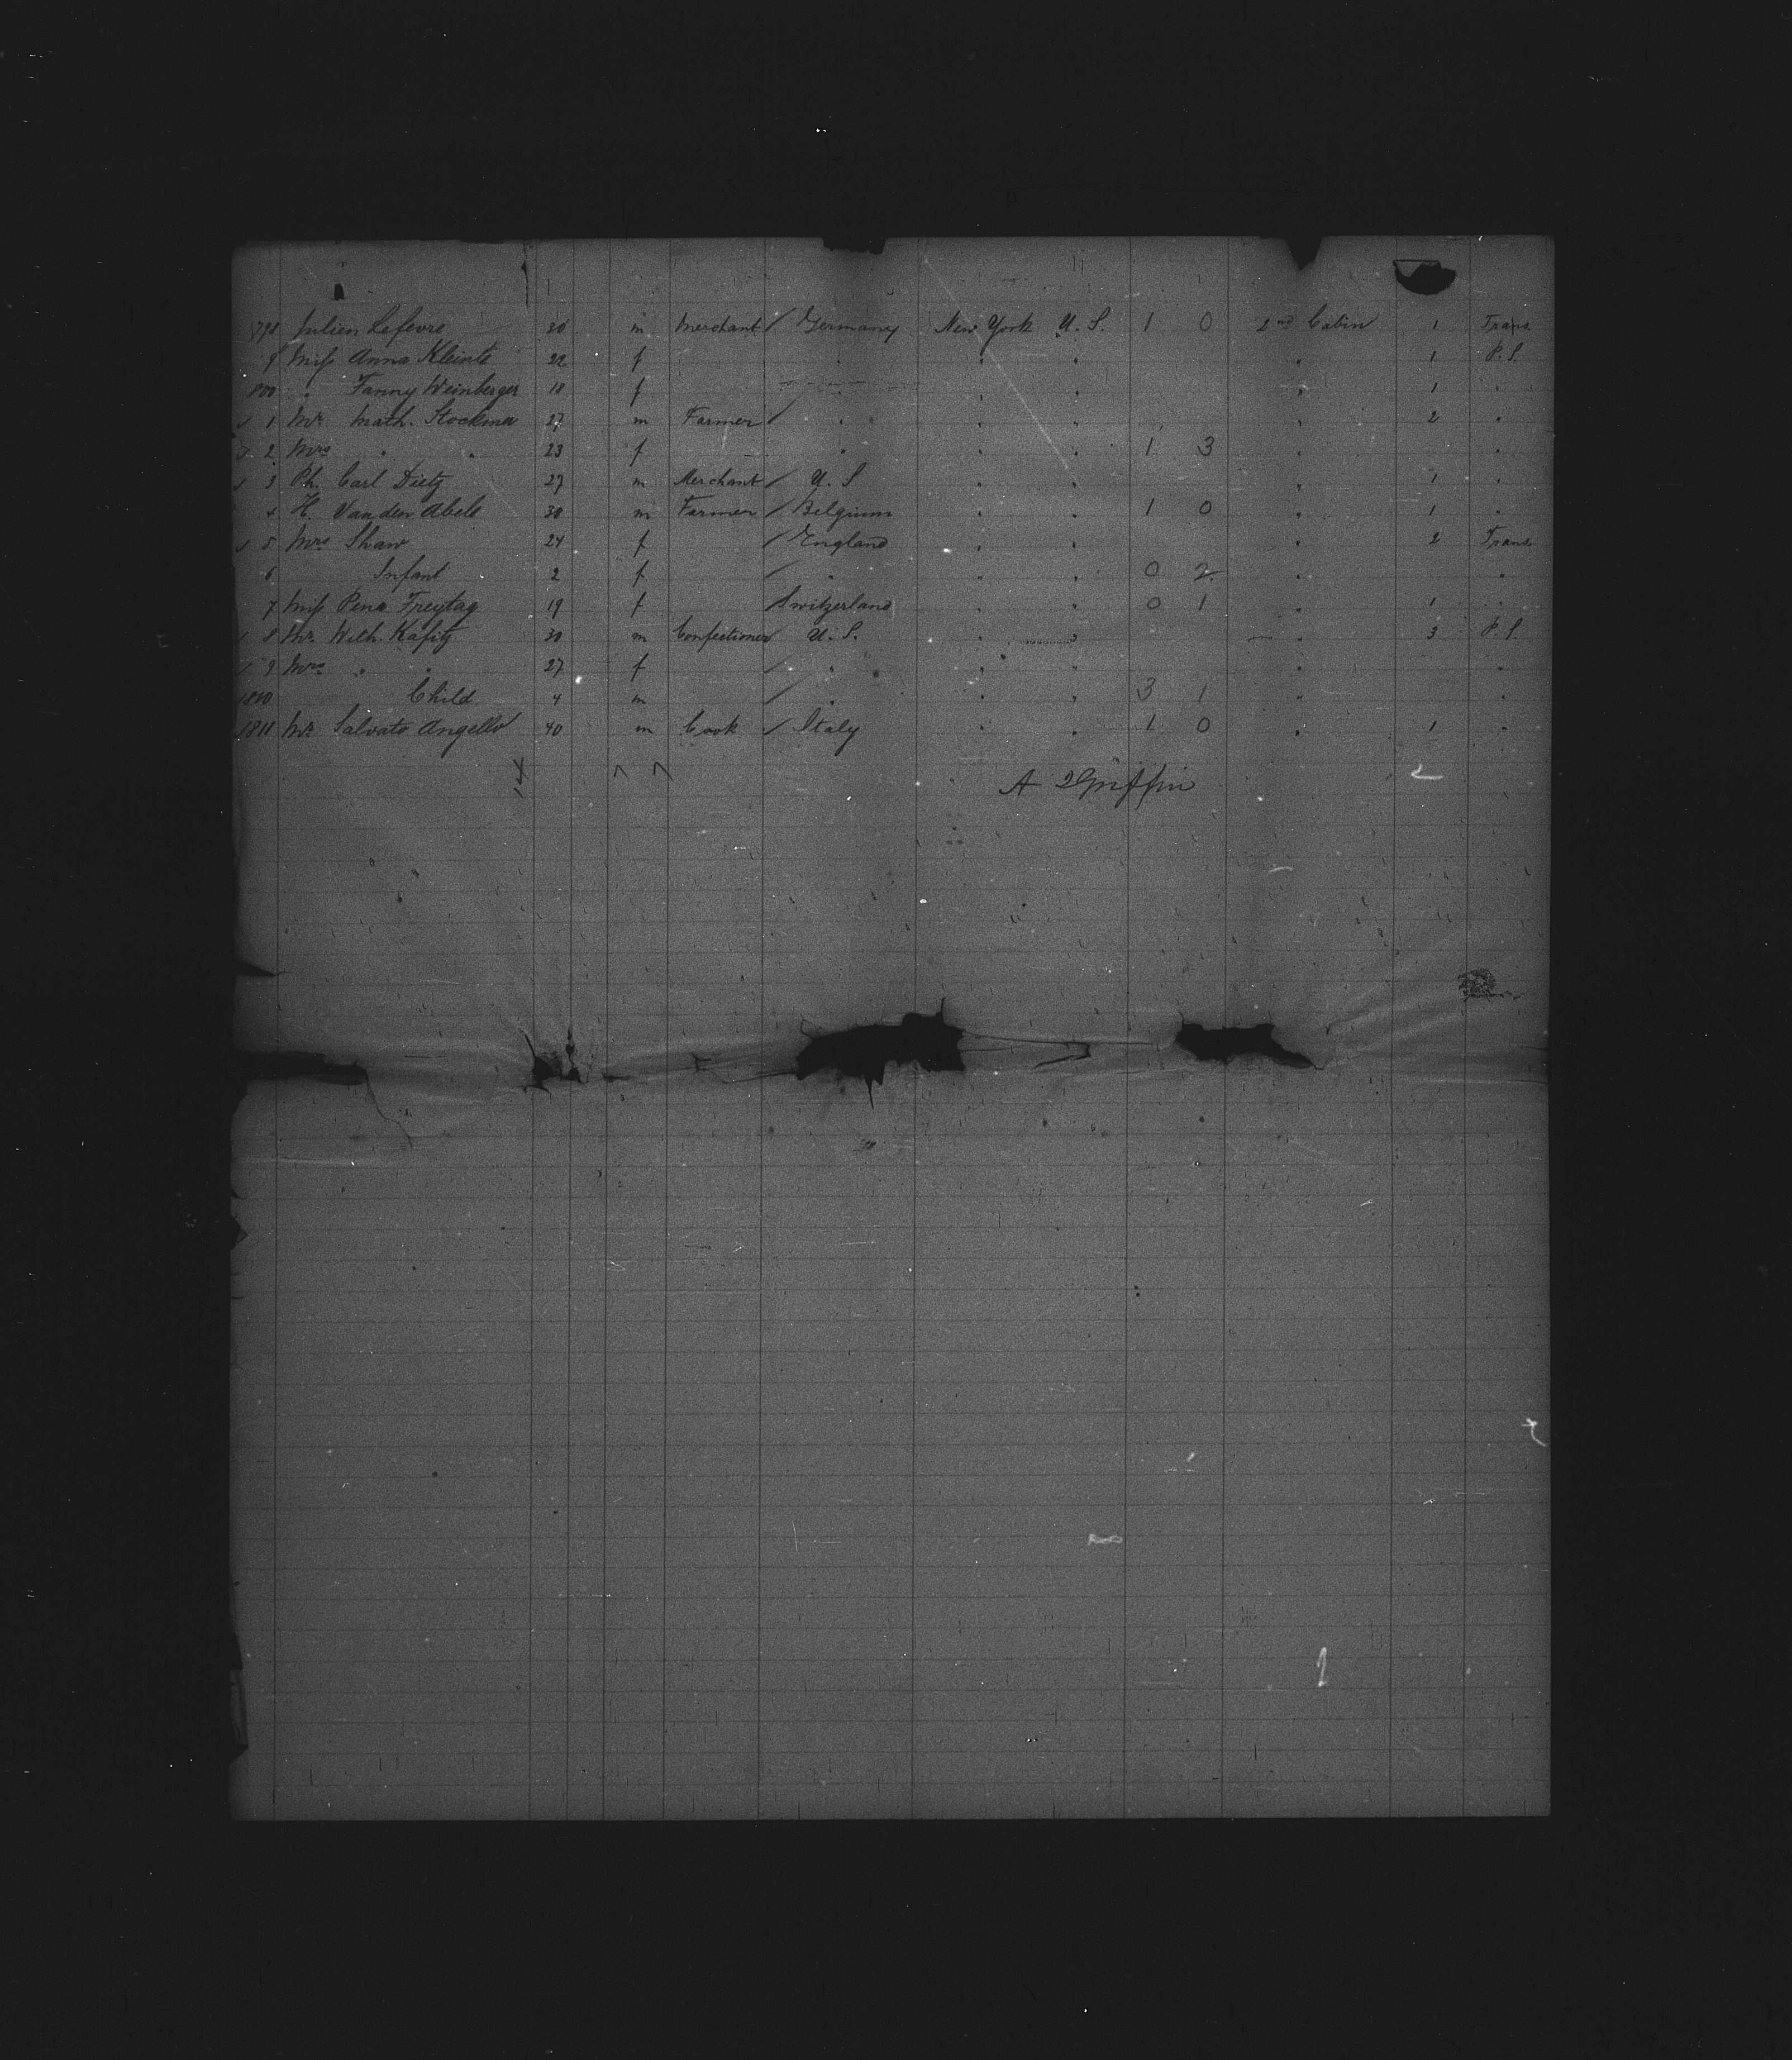 798 Julien Lefevre 30 m Merchant / Germany New York U. S. 1 0 2nd Cabin 1 Trans
9 Miss Anna Kleinle 22 f " " " " 1 P. S.
800 " Fanny Weinberger 18 f " " " 1 "
1 Mr. Math. Stockmer 27 m Farmer / " " " " 2 "
2 Mrs " " 23 f " " " 1 3 "
3 Ph. Carl Dietz 27 m Merchant / U. S " " " 1 "
4 H. Van den Abele 30 m Farmer / Belgium " " 1 0 " 1 "
5 Mrs Shaw 24 f / England " " " 2 Trans
6 Infant 2 f / " " " 0 2 " "
7 Miss Freytag 19 f / Switzerland " " 0 1 " 1 "
8 Mr. Wilh. Kafitz 30 m Confectioner U. S. " " " 3 P. S.
9 Mrs " " 27 f / " " " " "
1810 Child 4 m / " " " 3 1 " "
1811 Mr. Salvato Angello 40 m Cook / Italy " " 1 0 " 1 "
14 7 7 Griffin